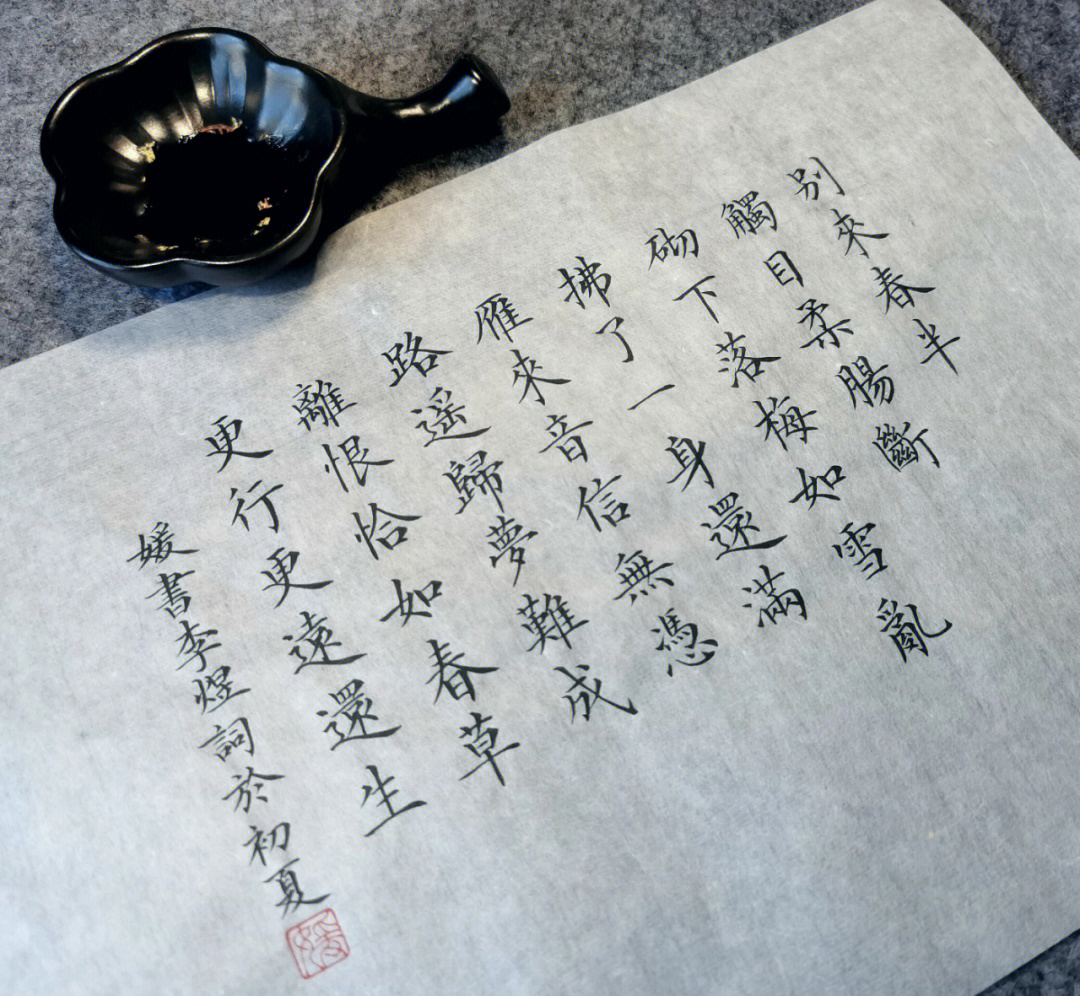 別來春半
觸目柔腸斷
砌下落梅如雪亂
拂了一身還滿
雁來音信無憑
路遥歸夢難成
離恨恰如春草
更行更遠還生
媛書李煜詞於初夏
媛